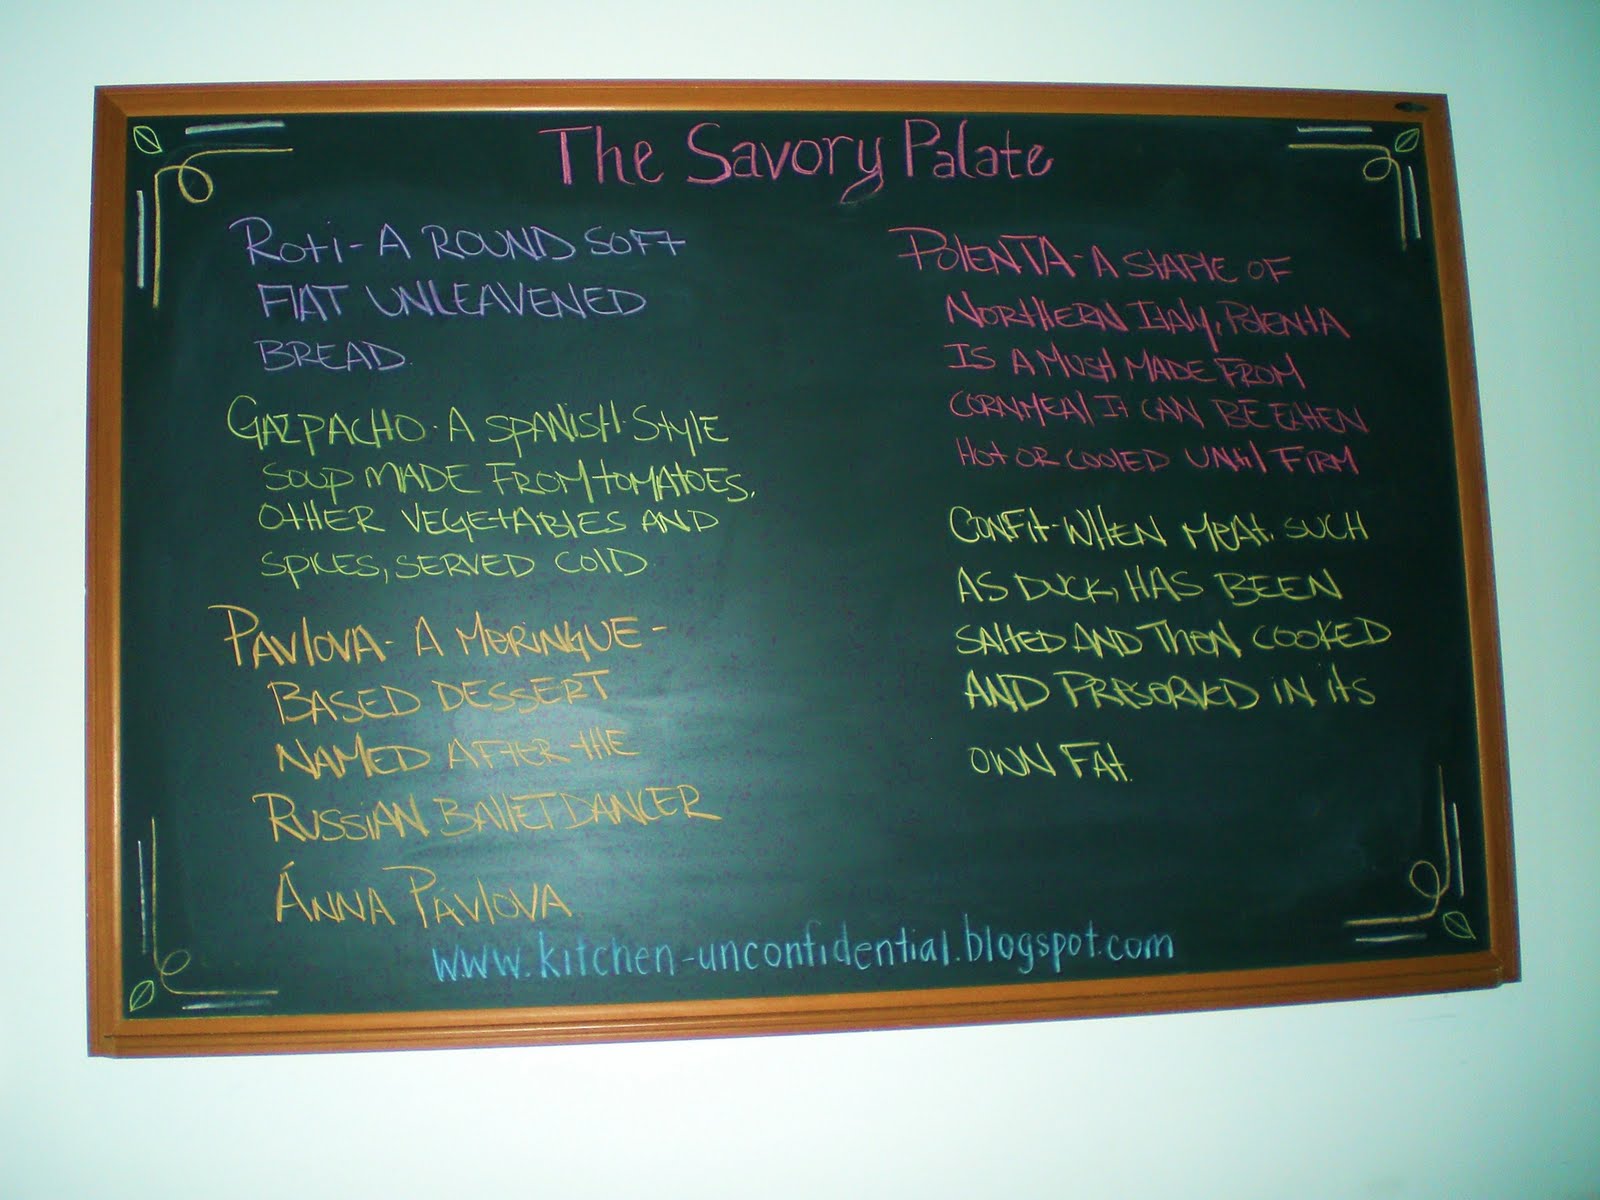 The Savory Palate
Roti - A ROUND SOFT
FLAT UNLEAVENED
BREAD.
GAZPACHO - A SPANISH-STYLE
SOUP MADE FROM TOMATOES,
OTHER VEGETABLES AND
SPICES, SERVED COLD
PAVLOVA - A MERINGUE -
BASED DESSERT
NAMED AFTER THE
RUSSIAN BALLET DANCER
ÁNNA PÁVLOVA
POLENTA - A STAPLE OF
NORTHERN ITALY, POLENTA
IS A MUSH MADE FROM
CORNMEAL IT CAN BE EATEN
HOT OR COOLED UNTIL FIRM
CONFIT - WHEN MEAT, SUCH
AS DUCK, HAS BEEN
SALTED AND THEN COOKED
AND PRESERVED IN ITS
OWN FAT.
www.kitchen-unconfidential.blogspot.com